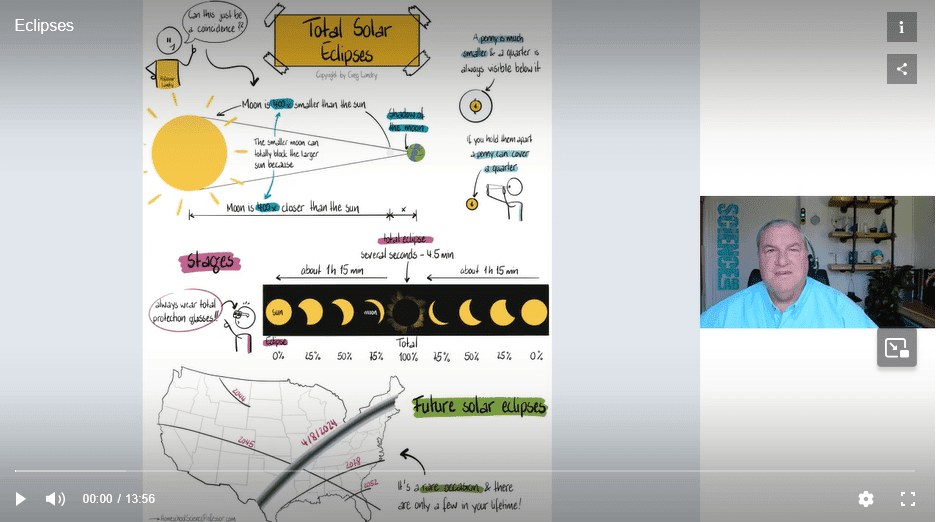 Eclipses
Can this just be
a coincidence?!
Professor
Landry
Total Solar
Eclipses
Copyright by Greg Landry
A penny is much
smaller & a quarter is
always visible below it
Moon is 400x smaller than the sun
Shadow of
the moon
The smaller moon can
totally block the larger
sun because
If you hold them apart
a penny can cover
a quarter
Moon is 400x closer than the sun
x
SCIENCE
LAB
total eclipse
several seconds - 4.5 min
Stages
about 1h 15 min
about 1h 15 min
always wear total
protection glasses!!
Sun
moon
Eclipse
Total
0% 25% 50% 75% 100% 75% 50% 25% 0%
2044
2045
4/8/2024
2078
2052
Future solar eclipses
It's a rare occasion & there
are only a few in your lifetime!
HomeschoolScienceProfessor.com
00:00 / 13:56